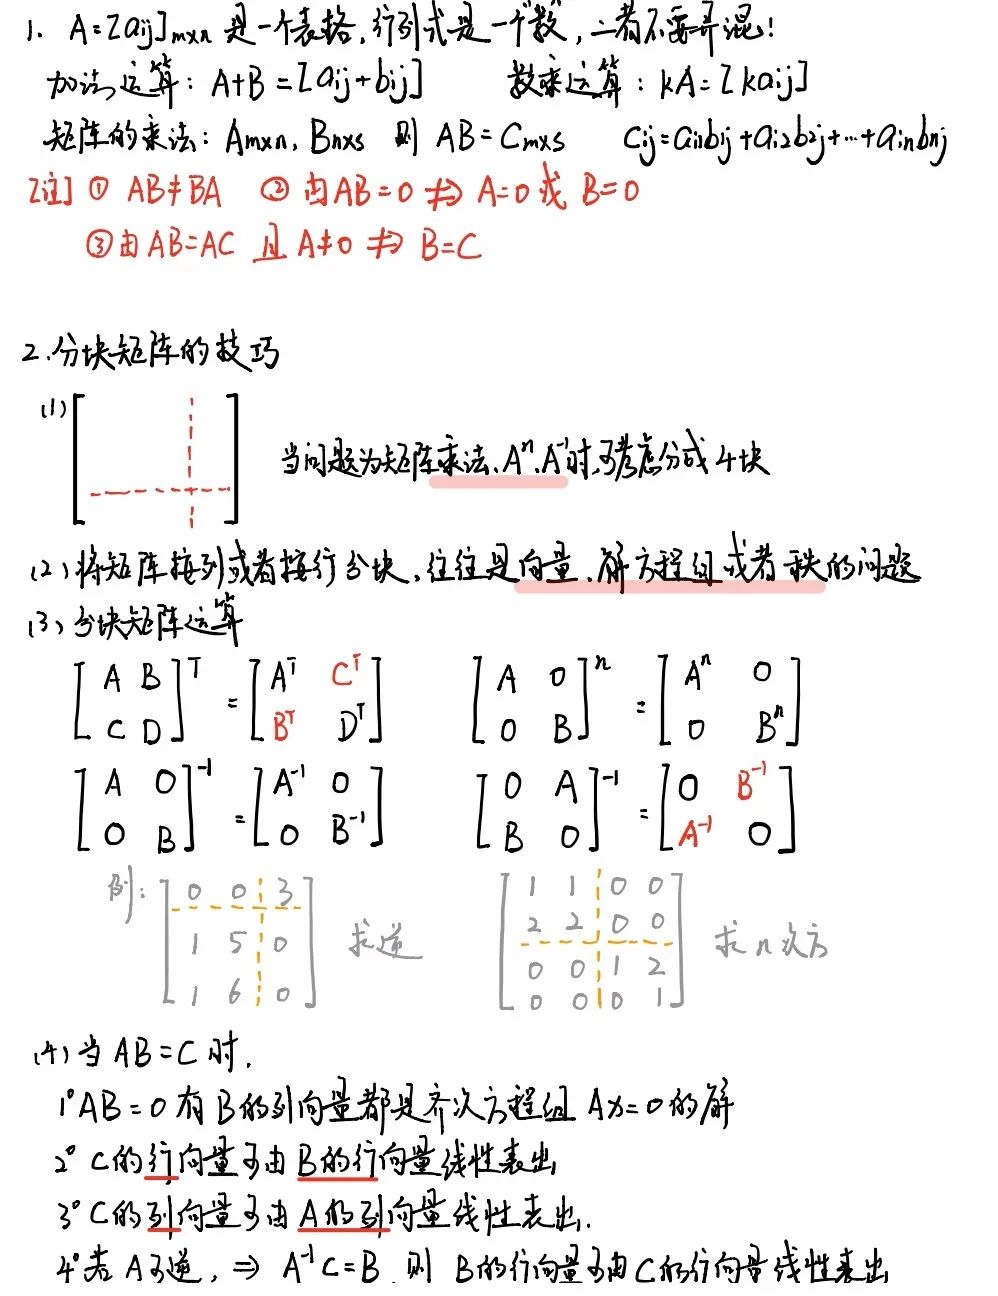 1. A=[aij]m×n 是一个表格,行列式是一个"数",二者不要弄混!
加法运算:A+B=[aij+bij] 数乘运算:kA=[kaij]
矩阵的乘法:Am×n, Bn×s 则 AB=Cm×s cij=ai1b1j+ai2b2j+…+ainbnj
[注] ① AB≠BA ② 由AB=0 ⇏ A=0 或 B=0
③由AB=AC 且 A≠0 ⇏ B=C
2.分块矩阵的技巧
(1)
当问题为矩阵乘法、Aⁿ、A⁻¹时,可考虑分成4块
(2)将矩阵按列或者按行分块,往往是向量、解方程组或者秩的问题
(3)分块矩阵运算
[A B; C D]ᵀ = [Aᵀ Cᵀ; Bᵀ Dᵀ] [A 0; 0 B]ⁿ = [Aⁿ 0; 0 Bⁿ]
[A 0; 0 B]⁻¹ = [A⁻¹ 0; 0 B⁻¹] [0 A; B 0]⁻¹ = [0 B⁻¹; A⁻¹ 0]
例: [0 0 3; 1 5 0; 1 6 0] 求逆 [1 1 0 0; 2 2 0 0; 0 0 1 2; 0 0 0 1] 求n次方
(4)当 AB=C 时.
1° AB=0 有 B的列向量都是齐次方程组 Ax=0 的解
2° C的行向量可由 B的行向量线性表出
3° C的列向量可由 A的列向量线性表出.
4° 若 A可逆, ⇒ A⁻¹C=B 则 B的行向量可由 C的行向量线性表出